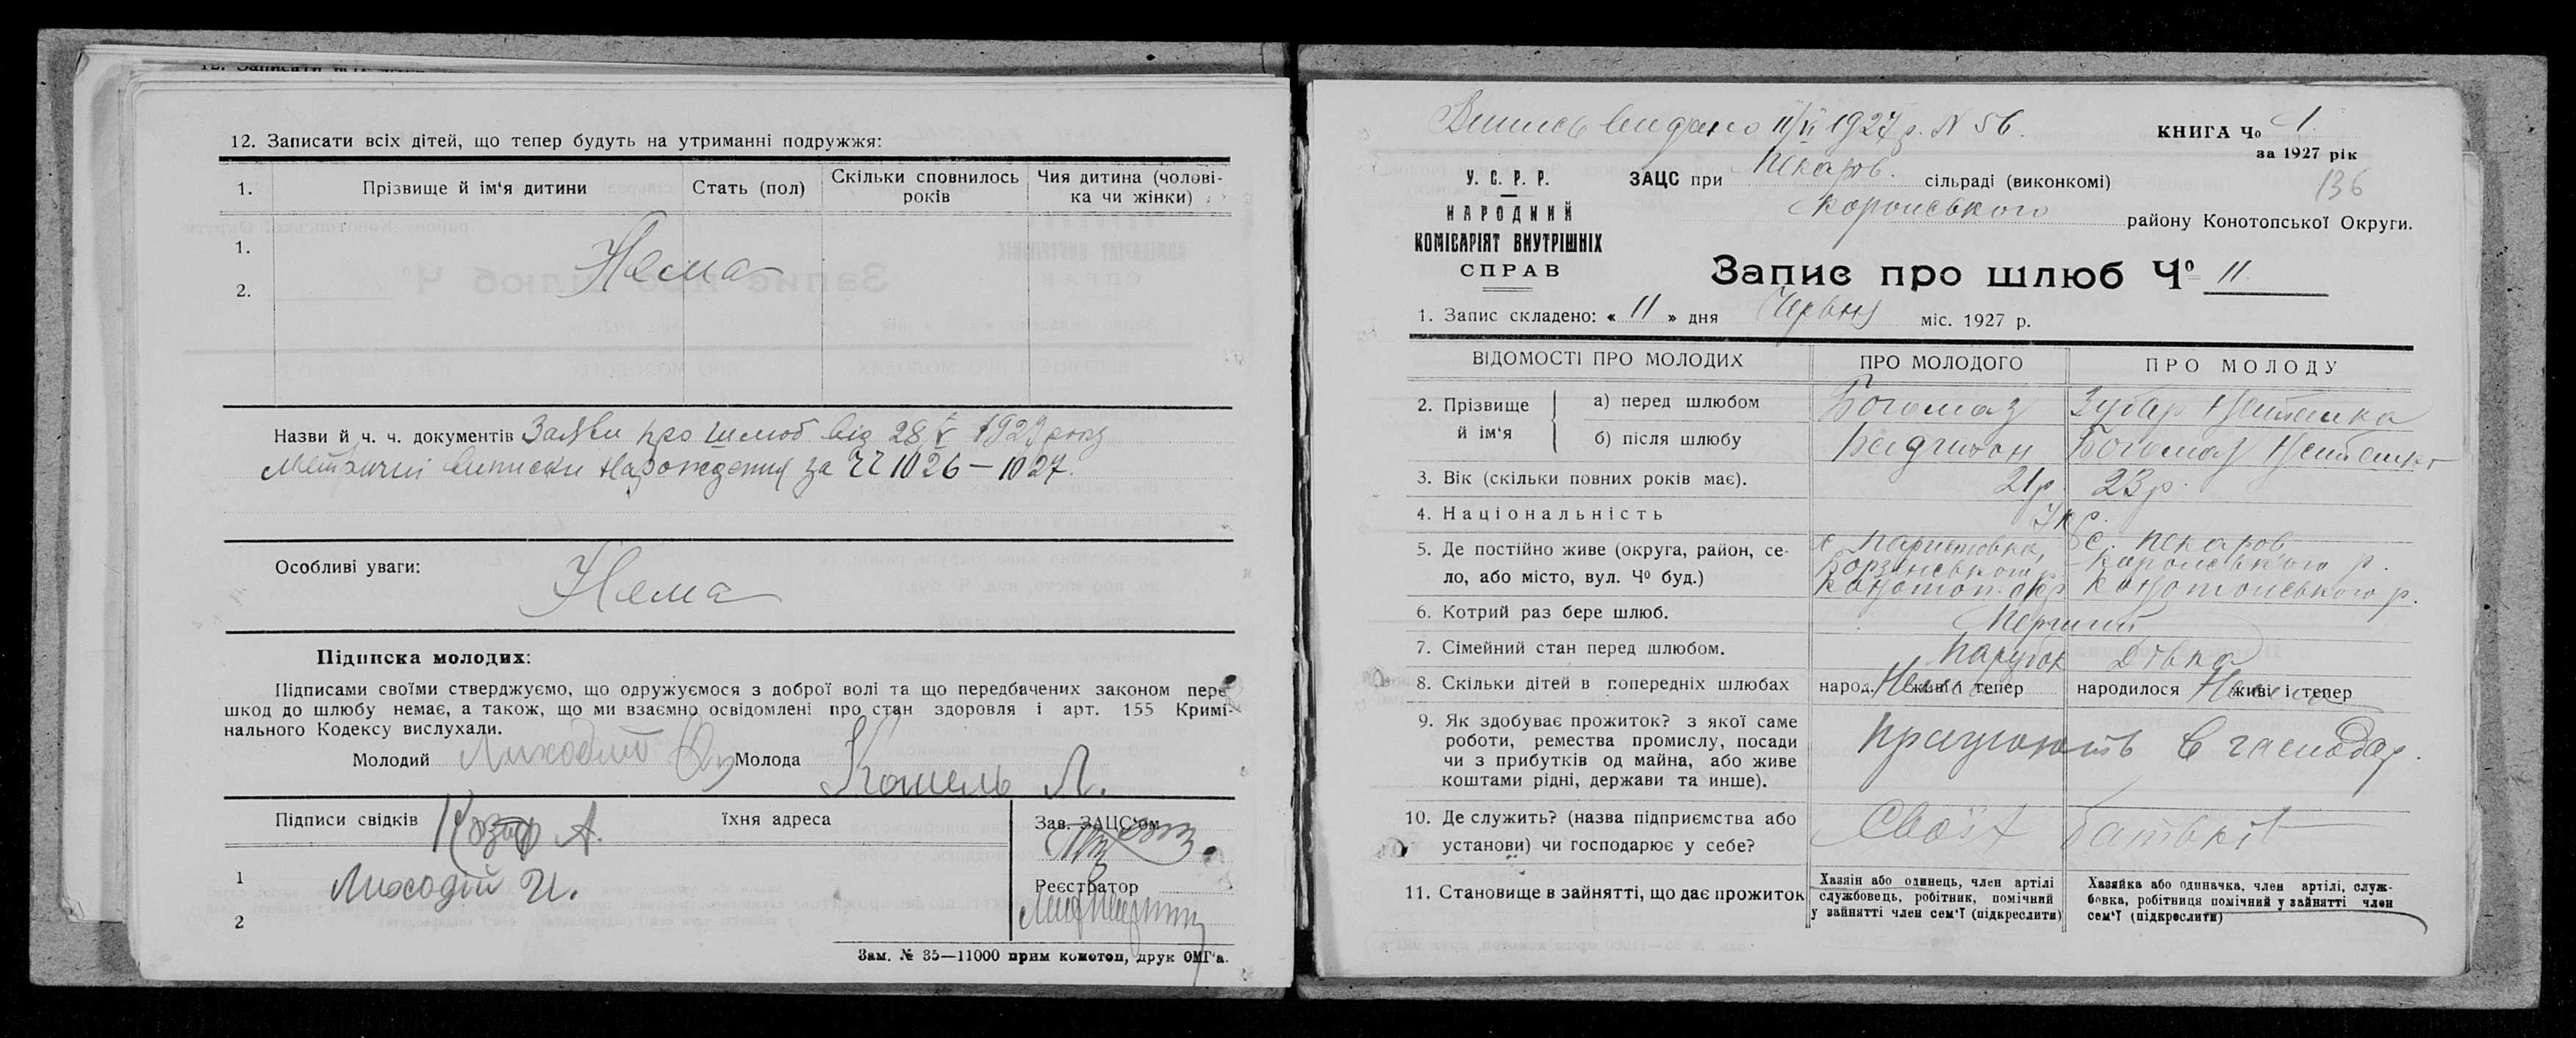 12. Записати всіх дітей, що тепер будуть на утриманні подружжя:
1. Прізвище й ім'я дитини Стать (пол) Скільки сповнилось років Чия дитина (чоловіка чи жінки)
1. Нема
2.
Назви й ч. ч. документів Заяви про шлюб від 28/V 1927 року
Метричні виписки нарождення за ЧЧ 1026 — 1027.
Особливі уваги:
Нема
Підписка молодих:
Підписами своїми стверджуємо, що одружуємося з доброї волі та що передбачених законом пере
шкод до шлюбу немає, а також, що ми взаємно освідомлені про стан здоровля і арт. 155 Кримі-
нального Кодексу вислухали.
Молодий Молода Кошель Л.
Підписи свідків А. їхня адреса Зав. ЗАЦС'ом
1 Лиходій И. Реєстратор
2
Зам. № 35—11000 прим конотоп, друк ОМГ'а.
Випись видано 11/VI 1927 р. N 56.
КНИГА Чо 1.
за 1927 рік
136
У. С. Р. Р.
НАРОДНИЙ
КОМІСАРІЯТ ВНУТРІШНІХ
СПРАВ
ЗАЦС при Пекаров. сільраді (виконкомі)
Коропського району Конотопської Округи.
Запис про шлюб Чо 11
1. Запис складено: « 11 » дня Червня міс. 1927 р.
ВІДОМОСТІ ПРО МОЛОДИХ ПРО МОЛОДОГО ПРО МОЛОДУ
2. Прізвище й ім'я а) перед шлюбом Богомаз Зубар
б) після шлюбу Богомаз
3. Вік (скільки повних років має). 21 р. 23 р.
4. Національність Укр.
5. Де постійно живе (округа, район, се-
ло, або місто, вул. Чо буд.)
Борзенського р. Конотоп. окр.
с. Пекаров Коропського р. Конотопського р.
6. Котрий раз бере шлюб. Перший
7. Сімейний стан перед шлюбом. Парубок Дівка
8. Скільки дітей в попередніх шлюбах народ. Нема живі і тепер народилося Нема живі і тепер
9. Як здобуває прожиток? з якої саме
роботи, ремества промислу, посади
чи з прибутків од майна, або живе
коштами рідні, держави та инше).
Працюють в господар.
10. Де служить? (назва підприємства або
установи) чи господарює у себе?
Своїх батьків
11. Становище в зайнятті, що дає прожиток
Хазяін або одинець, член артілі
службовець, робітник, помічний
у зайнятті член сем'ї (підкреслити)
Хазяйка або одиначка, член артілі, служ-
бовка, робітниця помічний у зайнятті член
сем'ї (підкреслити)